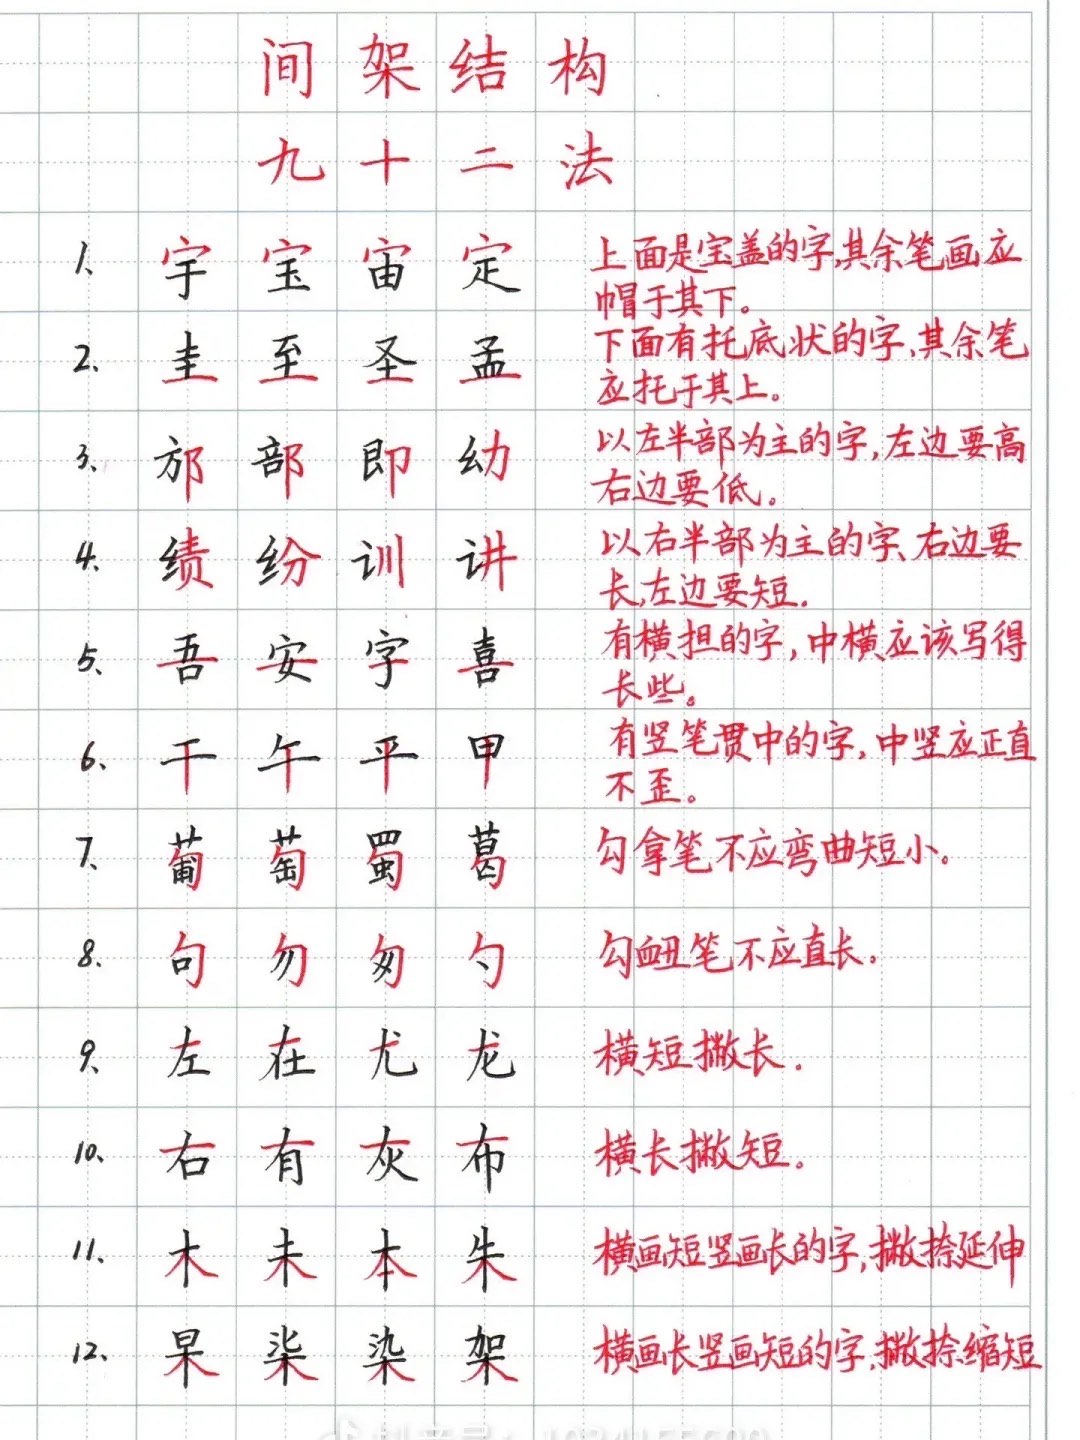 间架结构
九十二法
1、宇宝宙定 上面是宝盖的字,其余笔画应
帽于其下。
2、圭至圣孟 下面有托底状的字,其余笔
应托于其上。
3、邡部即幼 以左半部为主的字,左边要高
右边要低。
4、绩纷训讲 以右半部为主的字、右边要
长,左边要短.
5、吾安字喜 有横担的字,中横应该写得
长些。
6、干午平甲 有竖笔贯中的字,中竖应正直
不歪。
7、葡萄蜀葛 勾拿笔不应弯曲短小.
8、句勿匆勺 勾衄笔不应直长.
9、左在尤龙 横短撇长.
10、右有灰布 横长撇短.
11、木未本朱 横画短竖画长的字,撇捺延伸
12、杲柒染架 横画长竖画短的字,撇捺缩短